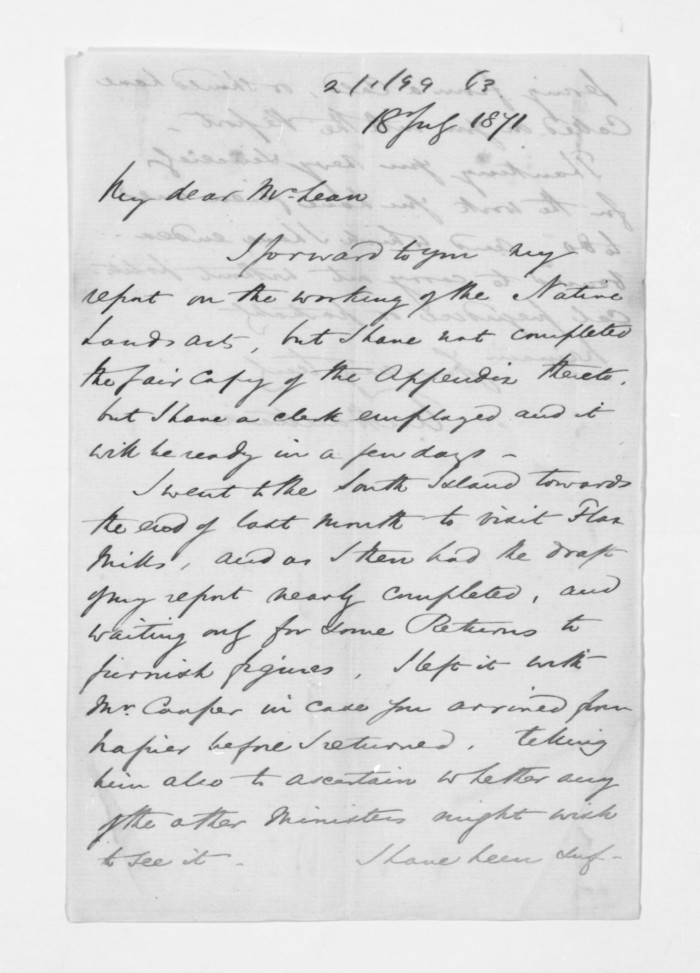 18 July 1871
My dear McLean
I forward to you my
report on the working of the Native
Lands acts, but I have not completed
the fair copy of the Appendix thereto,
but I have a clerk employed and it
will be ready in a few days -
I went to the South Island towards
the end of last month to visit Flax
Mills, and as I then had the draft
of my report nearly completed, and
waiting only for some Returns to
furnish figures, I left it with
Mr. Cooper in case you arrived from
Napier before I returned, telling
him also to ascertain whether any
of the other Ministers might wish
to see it - I have been suf-